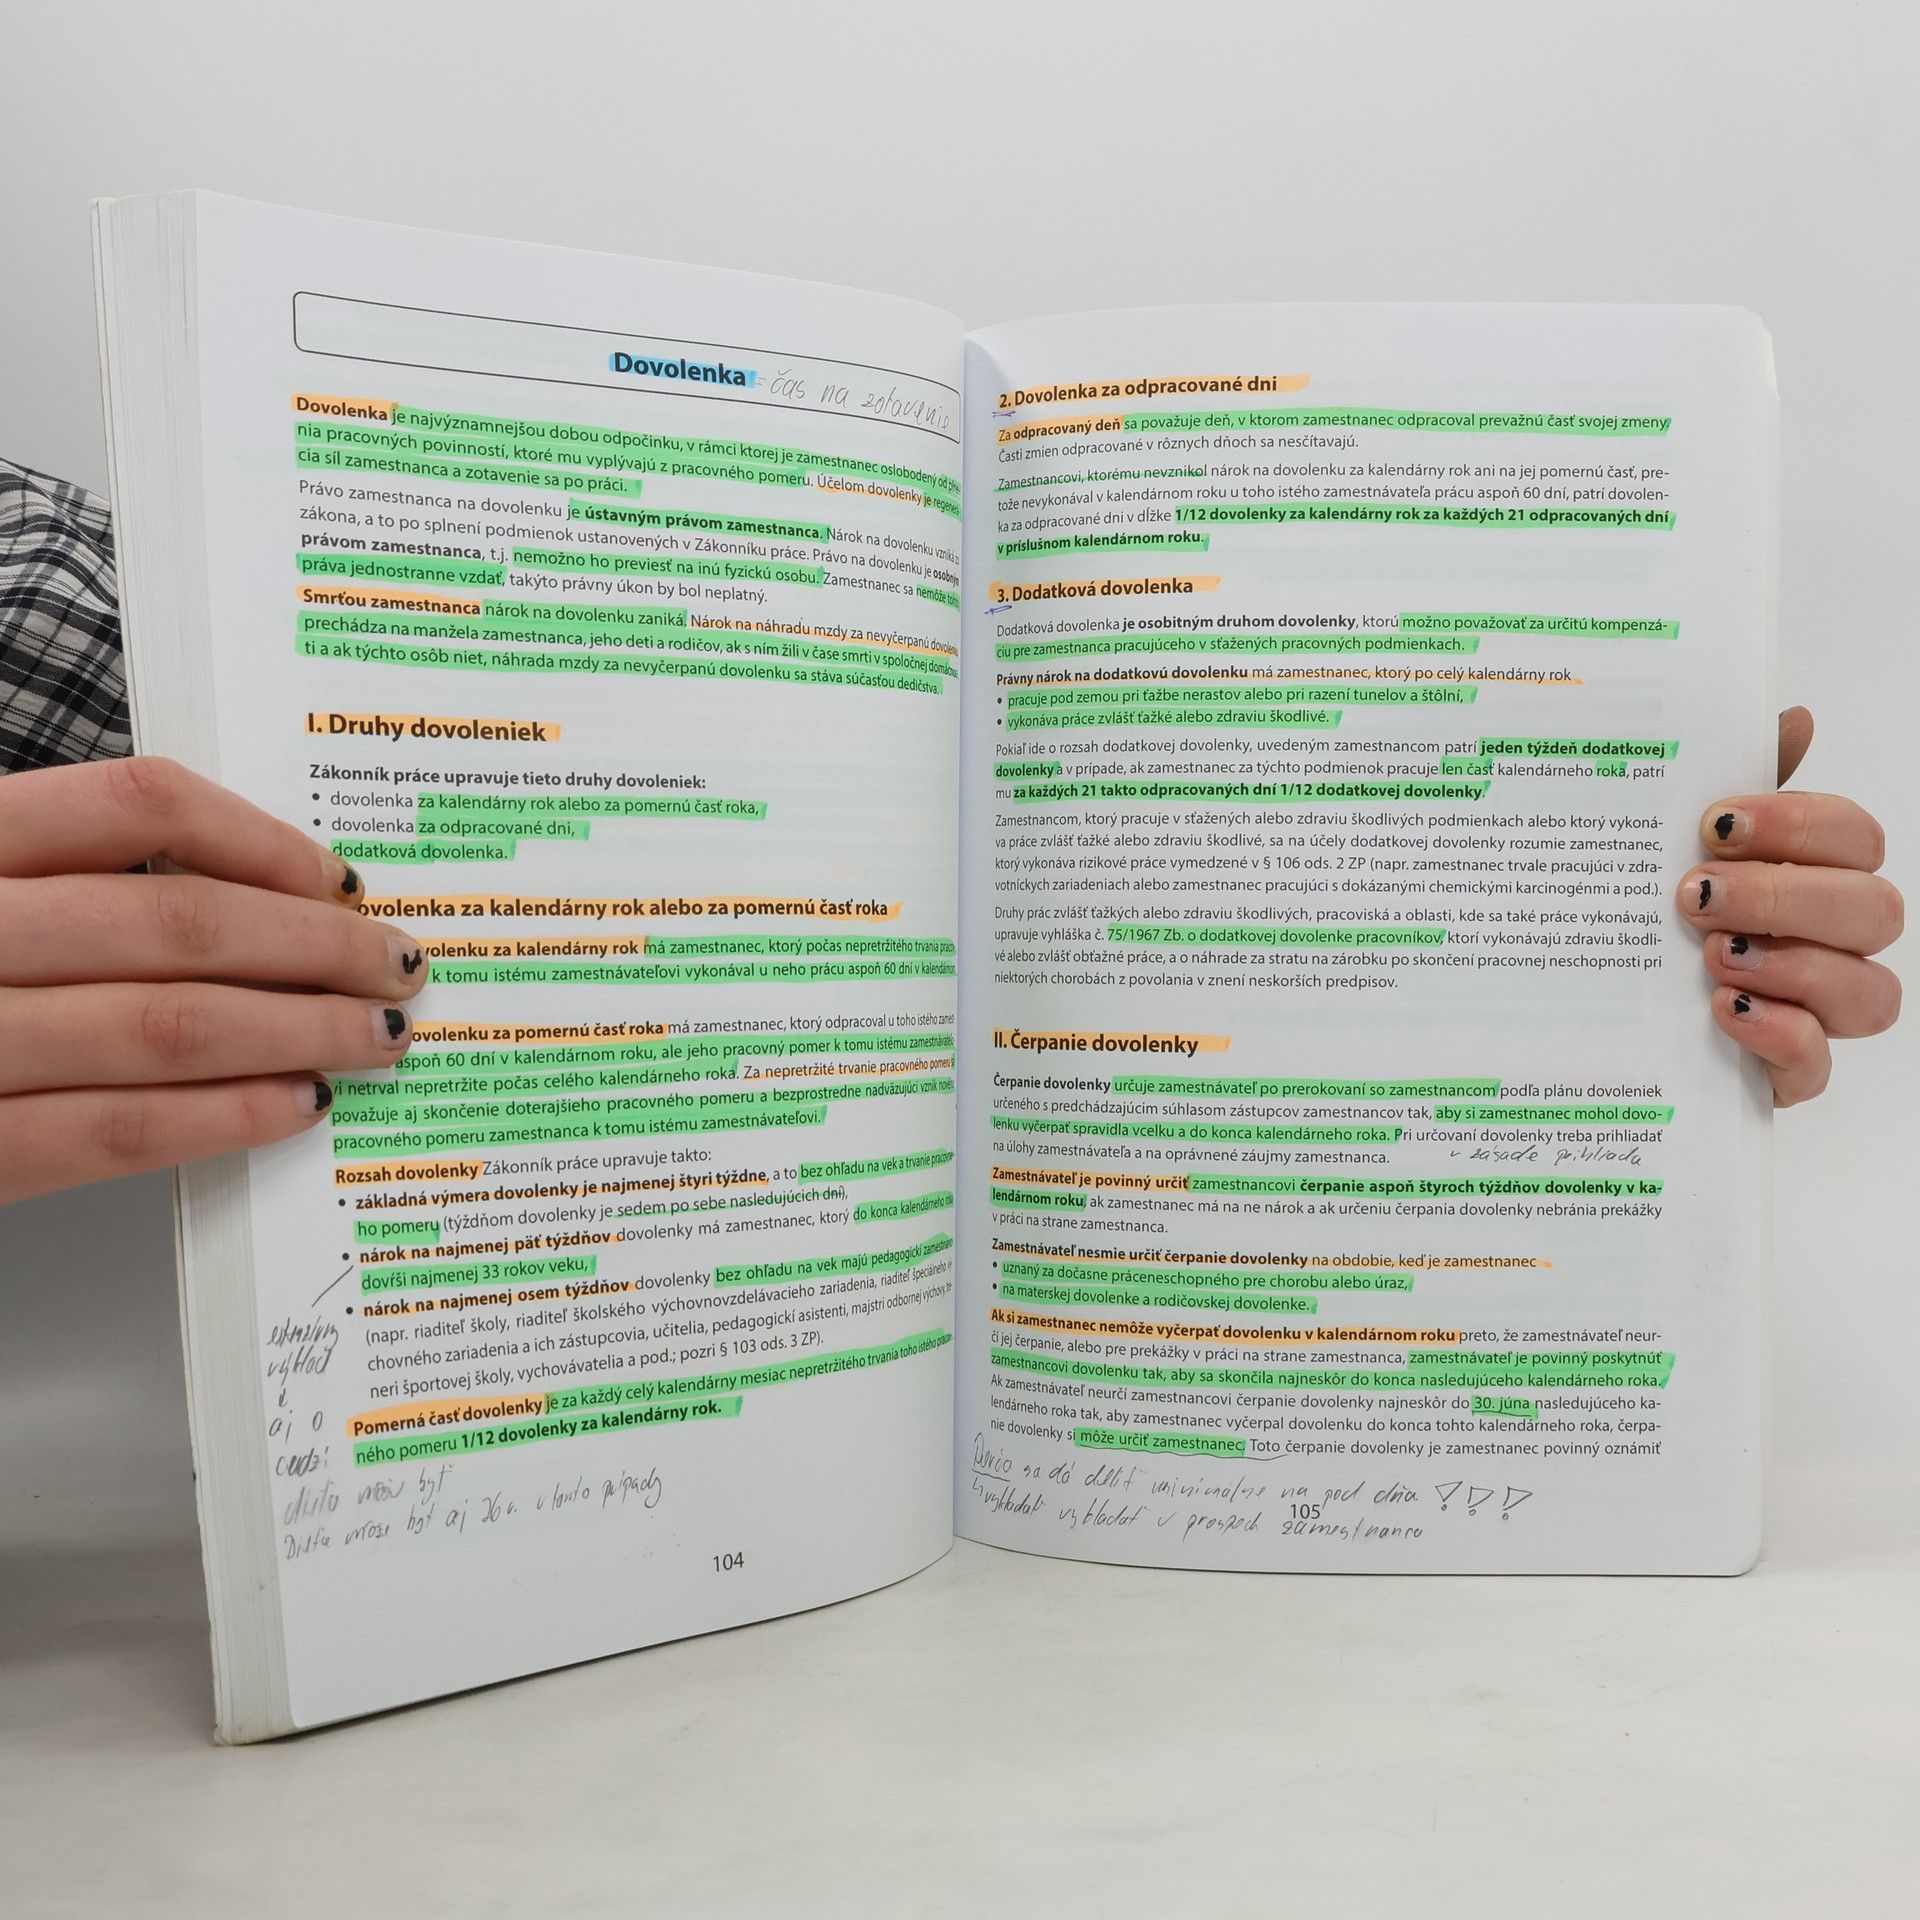 Dovolenka = čas na zotavenie
Dovolenka je najvýznamnejšou dobou odpočinku, v rámci ktorej je zamestnanec oslobodený od
nia pracovných povinností, ktoré mu vyplývajú z pracovného pomeru. Účelom dovolenky je
cia síl zamestnanca a zotavenie sa po práci.
Právo zamestnanca na dovolenku je ústavným právom zamestnanca. Nárok na dovolenku vzniká
zákona, a to po splnení podmienok ustanovených v Zákonníku práce. Právo na dovolenku je osobným
právom zamestnanca, t.j. nemožno ho previesť na inú fyzickú osobu. Zamestnanec sa nemôže
práva jednostranne vzdať, takýto právny úkon by bol neplatný.
Smrťou zamestnanca nárok na dovolenku zaniká. Nárok na náhradu mzdy za nevyčerpanú
prechádza na manžela zamestnanca, jeho deti a rodičov, ak s ním žili v čase smrti v spoločnej
ti a ak týchto osôb niet, náhrada mzdy za nevyčerpanú dovolenku sa stáva súčasťou dedičstva.
I. Druhy dovoleniek
Zákonník práce upravuje tieto druhy dovoleniek:
• dovolenka za kalendárny rok alebo za pomernú časť roka,
• dovolenka za odpracované dni,
dodatková dovolenka.
ovolenka za kalendárny rok alebo za pomernú časť roka
volenku za kalendárny rok má zamestnanec, ktorý počas nepretržitého trvania
k tomu istému zamestnávateľovi vykonával u neho prácu aspoň 60 dní v kalendárnom
ovolenku za pomernú časť roka má zamestnanec, ktorý odpracoval u toho istého
aspoň 60 dní v kalendárnom roku, ale jeho pracovný pomer k tomu istému
i netrval nepretržite počas celého kalendárneho roka. Za nepretržité trvanie pracovného pomeru sa
považuje aj skončenie doterajšieho pracovného pomeru a bezprostredne nadväzujúci vznik nového
pracovného pomeru zamestnanca k tomu istému zamestnávateľovi.
Rozsah dovolenky Zákonník práce upravuje takto:
• základná výmera dovolenky je najmenej štyri týždne, a to bez ohľadu na vek a trvanie
ho pomeru (týždňom dovolenky je sedem po sebe nasledujúcich dní),
• nárok na najmenej päť týždňov dovolenky má zamestnanec, ktorý do konca kalendárneho roka
dovŕši najmenej 33 rokov veku,
• nárok na najmenej osem týždňov dovolenky bez ohľadu na vek majú pedagogickí
(napr. riaditeľ školy, riaditeľ školského výchovnovzdelávacieho zariadenia, riaditeľ špeciálneho
chovného zariadenia a ich zástupcovia, učitelia, pedagogickí asistenti, majstri odbornej výchovy,
neri športovej školy, vychovávatelia a pod.; pozri § 103 ods. 3 ZP).
Pomerná časť dovolenky je za každý celý kalendárny mesiac nepretržitého trvania toho istého
ného pomeru 1/12 dovolenky za kalendárny rok.
výklad
aj o
cudzí
môže byť
môže byť aj 26 v tomto prípade
104
2. Dovolenka za odpracované dni
Za odpracovaný deň sa považuje deň, v ktorom zamestnanec odpracoval prevažnú časť svojej zmeny.
Časti zmien odpracované v rôznych dňoch sa nesčítavajú.
Zamestnancovi, ktorému nevznikol nárok na dovolenku za kalendárny rok ani na jej pomernú časť, pre-
tože nevykonával v kalendárnom roku u toho istého zamestnávateľa prácu aspoň 60 dní, patrí dovolen-
ka za odpracované dni v dĺžke 1/12 dovolenky za kalendárny rok za každých 21 odpracovaných dní
v príslušnom kalendárnom roku.
3. Dodatková dovolenka
Dodatková dovolenka je osobitným druhom dovolenky, ktorú možno považovať za určitú kompenzá-
ciu pre zamestnanca pracujúceho v sťažených pracovných podmienkach.
Právny nárok na dodatkovú dovolenku má zamestnanec, ktorý po celý kalendárny rok
• pracuje pod zemou pri ťažbe nerastov alebo pri razení tunelov a štôlní,
• vykonáva práce zvlášť ťažké alebo zdraviu škodlivé.
Pokiaľ ide o rozsah dodatkovej dovolenky, uvedeným zamestnancom patrí jeden týždeň dodatkovej
dovolenky a v prípade, ak zamestnanec za týchto podmienok pracuje len časť kalendárneho roka, patrí
mu za každých 21 takto odpracovaných dní 1/12 dodatkovej dovolenky.
Zamestnancom, ktorý pracuje v sťažených alebo zdraviu škodlivých podmienkach alebo ktorý vykoná-
va práce zvlášť ťažké alebo zdraviu škodlivé, sa na účely dodatkovej dovolenky rozumie zamestnanec,
ktorý vykonáva rizikové práce vymedzené v § 106 ods. 2 ZP (napr. zamestnanec trvale pracujúci v zdra-
votníckych zariadeniach alebo zamestnanec pracujúci s dokázanými chemickými karcinogénmi a pod.).
Druhy prác zvlášť ťažkých alebo zdraviu škodlivých, pracoviská a oblasti, kde sa také práce vykonávajú,
upravuje vyhláška č. 75/1967 Zb. o dodatkovej dovolenke pracovníkov, ktorí vykonávajú zdraviu škodli-
vé alebo zvlášť obťažné práce, a o náhrade za stratu na zárobku po skončení pracovnej neschopnosti pri
niektorých chorobách z povolania v znení neskorších predpisov.
II. Čerpanie dovolenky
Čerpanie dovolenky určuje zamestnávateľ po prerokovaní so zamestnancom podľa plánu dovoleniek
určeného s predchádzajúcim súhlasom zástupcov zamestnancov tak, aby si zamestnanec mohol dovo-
lenku vyčerpať spravidla vcelku a do konca kalendárneho roka. Pri určovaní dovolenky treba prihliadať
na úlohy zamestnávateľa a na oprávnené záujmy zamestnanca.
v zásade prihliada
Zamestnávateľ je povinný určiť zamestnancovi čerpanie aspoň štyroch týždňov dovolenky v ka-
lendárnom roku, ak zamestnanec má na ne nárok a ak určeniu čerpania dovolenky nebránia prekážky
v práci na strane zamestnanca.
Zamestnávateľ nesmie určiť čerpanie dovolenky na obdobie, keď je zamestnanec
• uznaný za dočasne práceneschopného pre chorobu alebo úraz,
• na materskej dovolenke a rodičovskej dovolenke.
Ak si zamestnanec nemôže vyčerpať dovolenku v kalendárnom roku preto, že zamestnávateľ neur-
čí jej čerpanie, alebo pre prekážky v práci na strane zamestnanca, zamestnávateľ je povinný poskytnúť
zamestnancovi dovolenku tak, aby sa skončila najneskôr do konca nasledujúceho kalendárneho roka.
Ak zamestnávateľ neurčí zamestnancovi čerpanie dovolenky najneskôr do 30. júna nasledujúceho ka-
lendárneho roka tak, aby zamestnanec vyčerpal dovolenku do konca tohto kalendárneho roka, čerpa-
nie dovolenky si môže určiť zamestnanec. Toto čerpanie dovolenky je zamestnanec povinný oznámiť
sa dá deliť minimálne na pod dňa !!!
vykladať vykladať v prospech zamestnanca
105